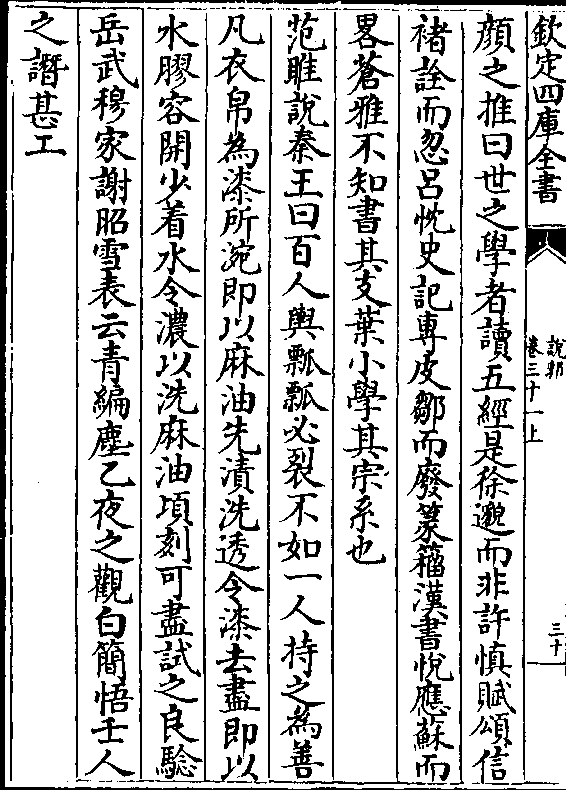 欽定四庫全書
說郛
卷三十一上
三十
顔之推曰世之學者讀五經是徐邈而非許慎賦頌信
褚詮而忽呂忱史記專皮鄒而廢篆籀漢書悅應蘇而
畧蒼雅不知書其支葉小學其宗系也
范睢說秦王曰百人輿瓢瓢必裂不如一人持之為善
凡衣帛為漆所涴即以麻油先漬洗透令漆去盡即以
水膠容開少着水令濃以洗麻油頃刻可盡試之良驗
岳武穆家謝昭雪表云青編塵乙夜之觀白簡悟壬人
之譖甚工